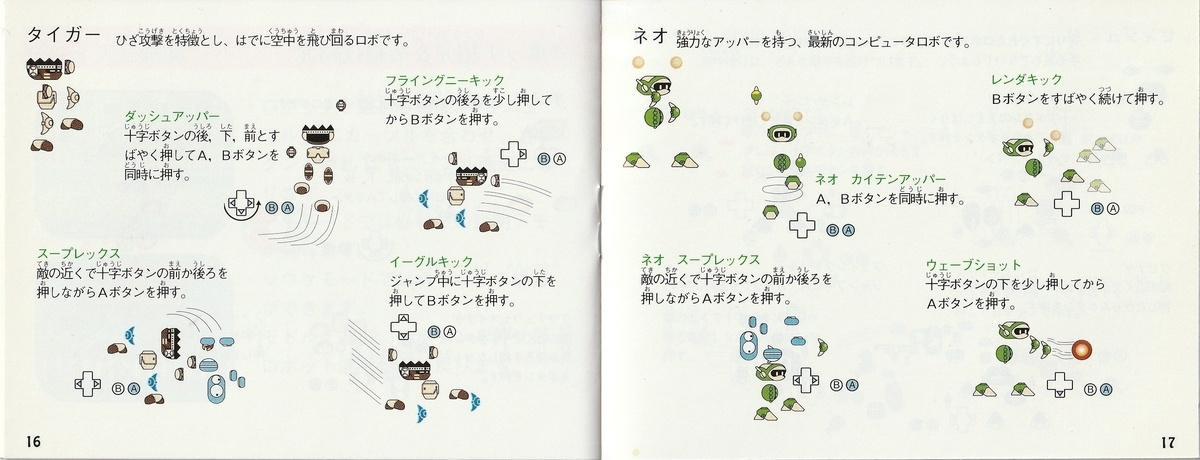 タイガー
ひざ攻撃を特徴とし、はでに空中を飛び回るロボです。
ダッシュアッパー
十字ボタンの後、下、前とす
ばやく押してA、Bボタンを
同時に押す。
B A
フライングニーキック
十字ボタンの後ろを少し押して
からBボタンを押す。
B A
スープレックス
敵の近くで十字ボタンの前か後ろを
押しながらAボタンを押す。
B A
イーグルキック
ジャンプ中に十字ボタンの下を
押してBボタンを押す。
B A
16
ネオ
強力なアッパーを持つ、最新のコンピュータロボです。
ネオ カイテンアッパー
A、Bボタンを同時に押す。
B A
レンダキック
Bボタンをすばやく続けて押す。
B A
ネオ スープレックス
敵の近くで十字ボタンの前か後ろを
押しながらAボタンを押す。
B A
ウェーブショット
十字ボタンの下を少し押してから
Aボタンを押す。
B A
17